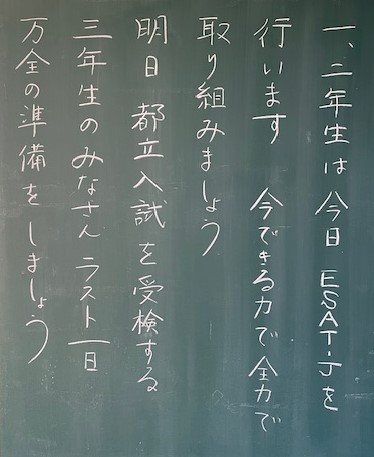 一、二年生は今日 ESAT-Jを
行います 今できる力で全力で
取り組みましょう
明日 都立入試を受検する
三年生のみなさん ラスト一日
万全の準備をしましょう